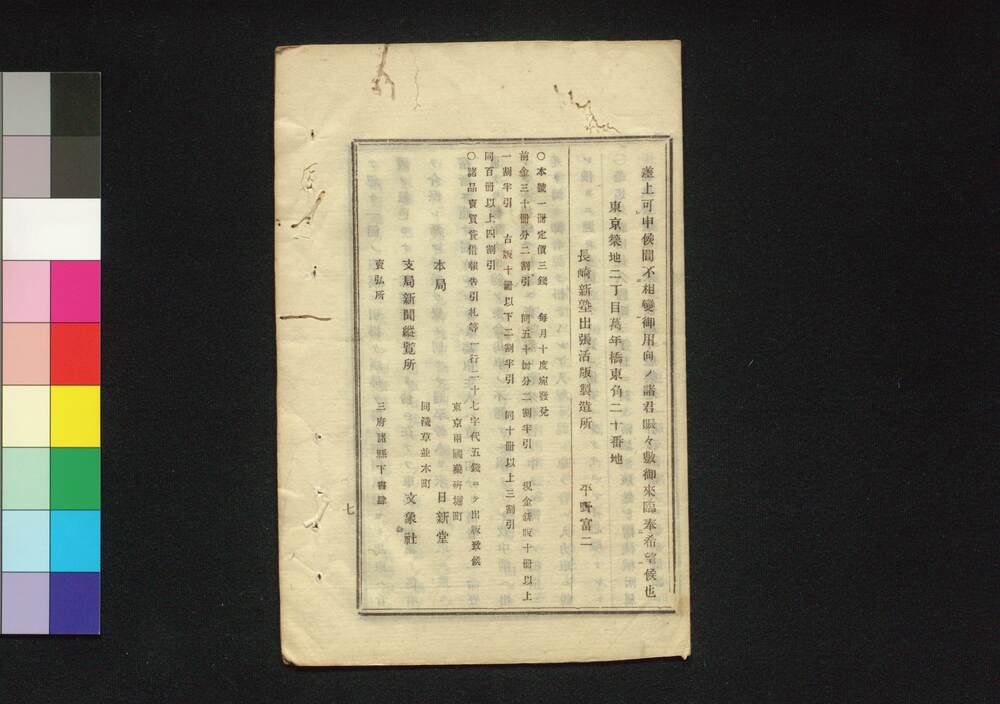 差上可申候間不相變御用向ノ諸君賑々敷御來臨奉希望候也
東京築地二丁目萬年橋東角二十番地
長崎新塾出張活版製造所　平野富二
○本號一冊定價三錢　每月十度宛發兌
前金三十冊分二割引　同五十冊分二割半引　現金新版十冊以上
一割半引　古版十冊以下二割半引　同十冊以上三割引
同百冊以上四割引
○諸品賣買貸借報告引札等一行二十七字代五錢ヨク出版致候
東京兩國藥硏堀町
本局　日新堂
同淺草並木町
支局新聞縱覧所　文象社
賣弘所　三府諸縣下書肆
七